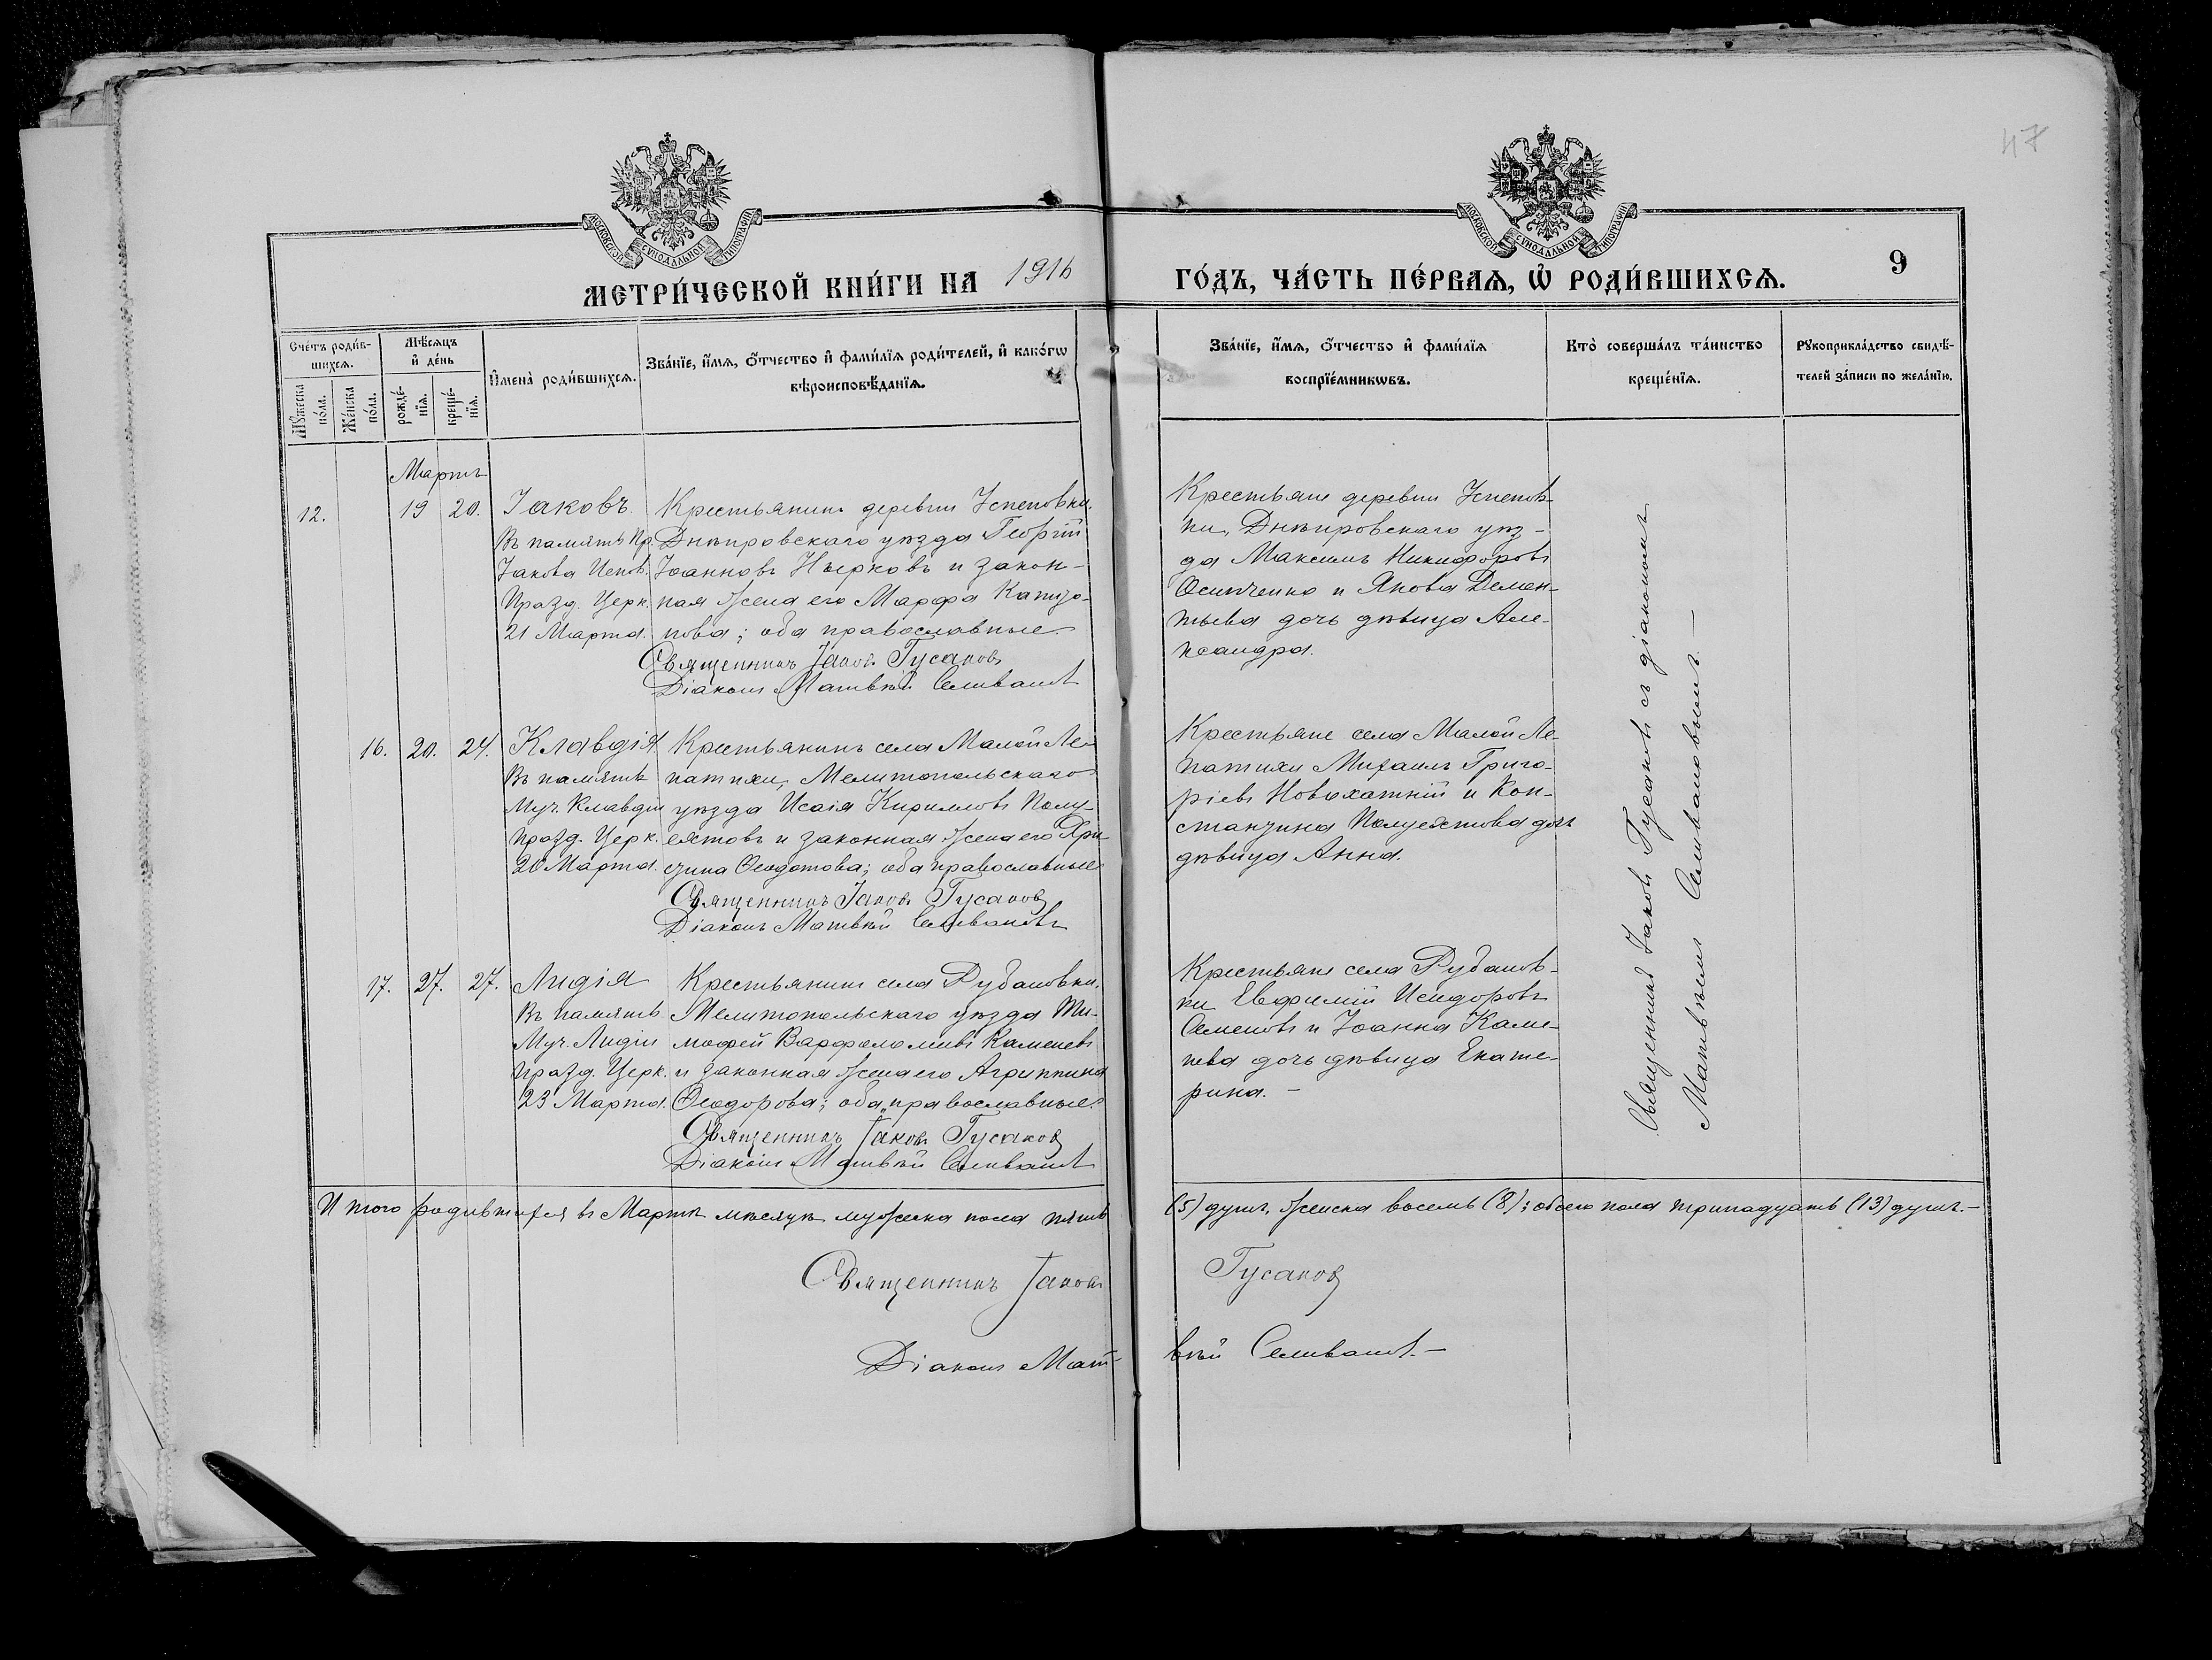 47
МОСКОВСКОЙ СѴНОДАЛЬНОЙ ТИПОГРАФІИ
МОСКОВСКОЙ СѴНОДАЛЬНОЙ ТИПОГРАФІИ
МЕТРИ́ЧЕСКОЙ КНИ́ГИ НА 1916 ГО́ДЪ, ЧА́СТЬ ПЕ́РВАѦ, Ѽ РОДИ́ВШИХСѦ.
9
Сче́тъ роди́в-
шихсѧ.
Мꙋ́жеска
по́ла.
Же́нска
по́ла.
Мѣ́сѧцъ
и҆ де́нь
рожде́-
нїѧ.
креще́-
нїѧ.
И҆мена̀ роди́вшихсѧ.
Зва́нїе, и҆́мѧ, ѻ҆́тчество и҆ фами́лїѧ роди́телей, и҆ како́гѡ
вѣроисповѣ́данїѧ.
Зва́нїе, и҆́мѧ, ѻ҆́тчество и҆ фами́лїѧ
воспрїе́мникѡвъ.
Кто̀ соверша́лъ та́инство
креще́нїѧ.
Рꙋкоприкла́дство свидѣ́-
телей за́писи по жела́нїю.
Мартъ
12. 19 20.
Іаковъ.
Въ память Пр.
Іакова Испов.
Празд. Церк.
21 Марта.
Крестьянинъ деревни Успеновки,
Днѣпровскаго уѣзда Георгій
Іоанновъ Нырковъ и закон-
ная жена его Марфа
нова; оба православные.
Священникъ Іаковъ Гусаковъ
Діаконъ Матвѣй Селивановъ
Крестьяне деревни Успенов-
ки, Днѣпровскаго уѣз-
да Максимъ Никифоровъ
Осипченко и Якова Демен-
тьева дочь дѣвица Але-
ксандра.
16. 20. 24.
Клавдія.
Въ память
Муч. Клавдіи
празд. Церк.
20 Марта.
Крестьянинъ села Малой Ле-
патихи, Мелитопольскаго
уѣзда Исаія Кирилловъ Полу-
ектовъ и законная жена его Хри-
стина Ѳеодотова; оба православные
Священникъ Іаковъ Гусаковъ
Діаконъ Матвѣй Селивановъ
Крестьяне села Малой Ле-
патихи Михаилъ Григо-
ріевъ Новохатній и Кон-
стантина Полуектова дочь
дѣвица Анна.
17. 27. 27.
Лидія
Въ память
Муч. Лидіи
празд. Церк.
23 Марта.
Крестьянинъ села Рубановки,
Мелитопольскаго уѣзда Ти-
мофей Варфоломеевъ Каменевъ
и законная жена его Агриппина
Ѳеодорова; оба православные.
Священникъ Іаковъ Гусаковъ
Діаконъ Матвѣй Селивановъ
Крестьяне села Рубанов-
ки Евфимій Исидоровъ
Семеновъ и Іоанна Каме-
нева дочь дѣвица Екате-
рина.-
Священникъ Іаковъ Гусаковъ съ діакономъ
Матвѣемъ Селивановымъ. —
Итого родившихся въ Мартѣ мѣсяцѣ мужеска пола пять (5) душъ, женска восемь (8); обоего пола тринадцать (13) душъ.-
Священникъ Іаковъ Гусаковъ
Діаконъ Мат- вѣй Селивановъ.-